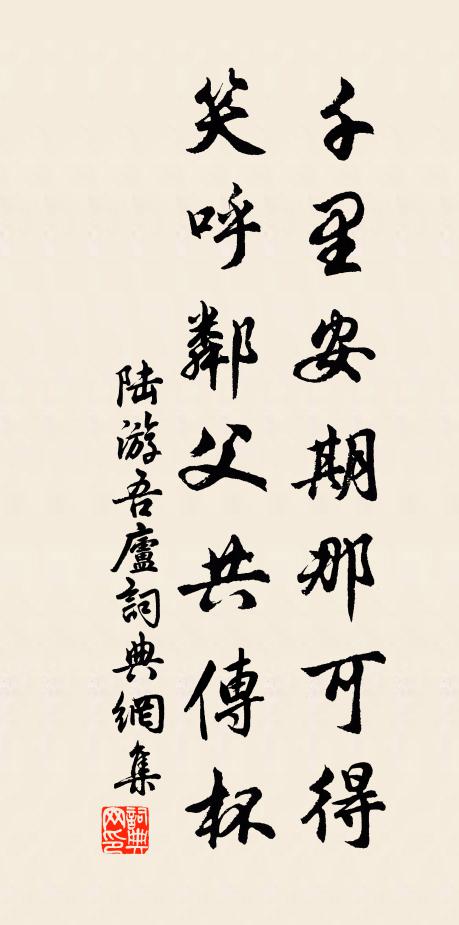 千里安期那可得
笑呼鄰父共傳杯
陆游吾廬詞典網集
詞典
网印